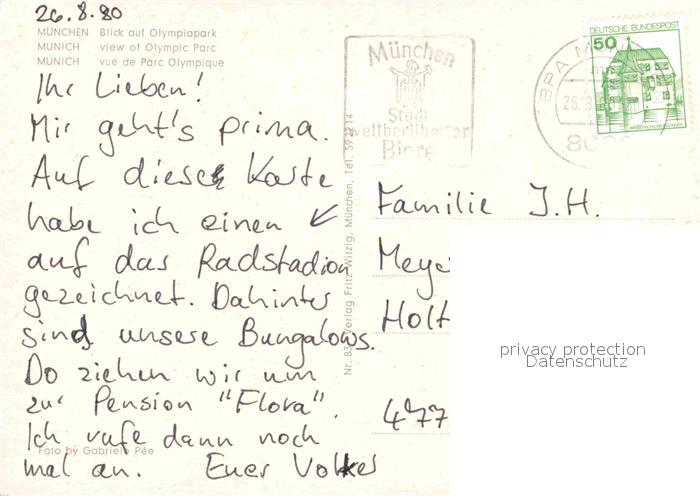 26.8.80
MÜNCHEN Blick auf Olympiapark
MUNICH view of Olympic Parc
MUNICH vue de Parc Olympique
Ihr Lieben!
Mir geht's prima.
Auf dieser Karte
habe ich einen ↙
auf das Radstadion
gezeichnet. Dahinter
sind unsere Bungalows.
Do ziehen wir um
zur Pension "Flora".
Ich rufe dann noch
mal an. Euer Volker
Foto by Gabriele Pée
Verlag Fritz Witzig, München, Tel. 592214
München
Stadt
weltberühmter
Biere
BPA
26.8
DEUTSCHE BUNDESPOST
50
Familie J.H.
Meye
Holt
477
privacy protection
Datenschutz